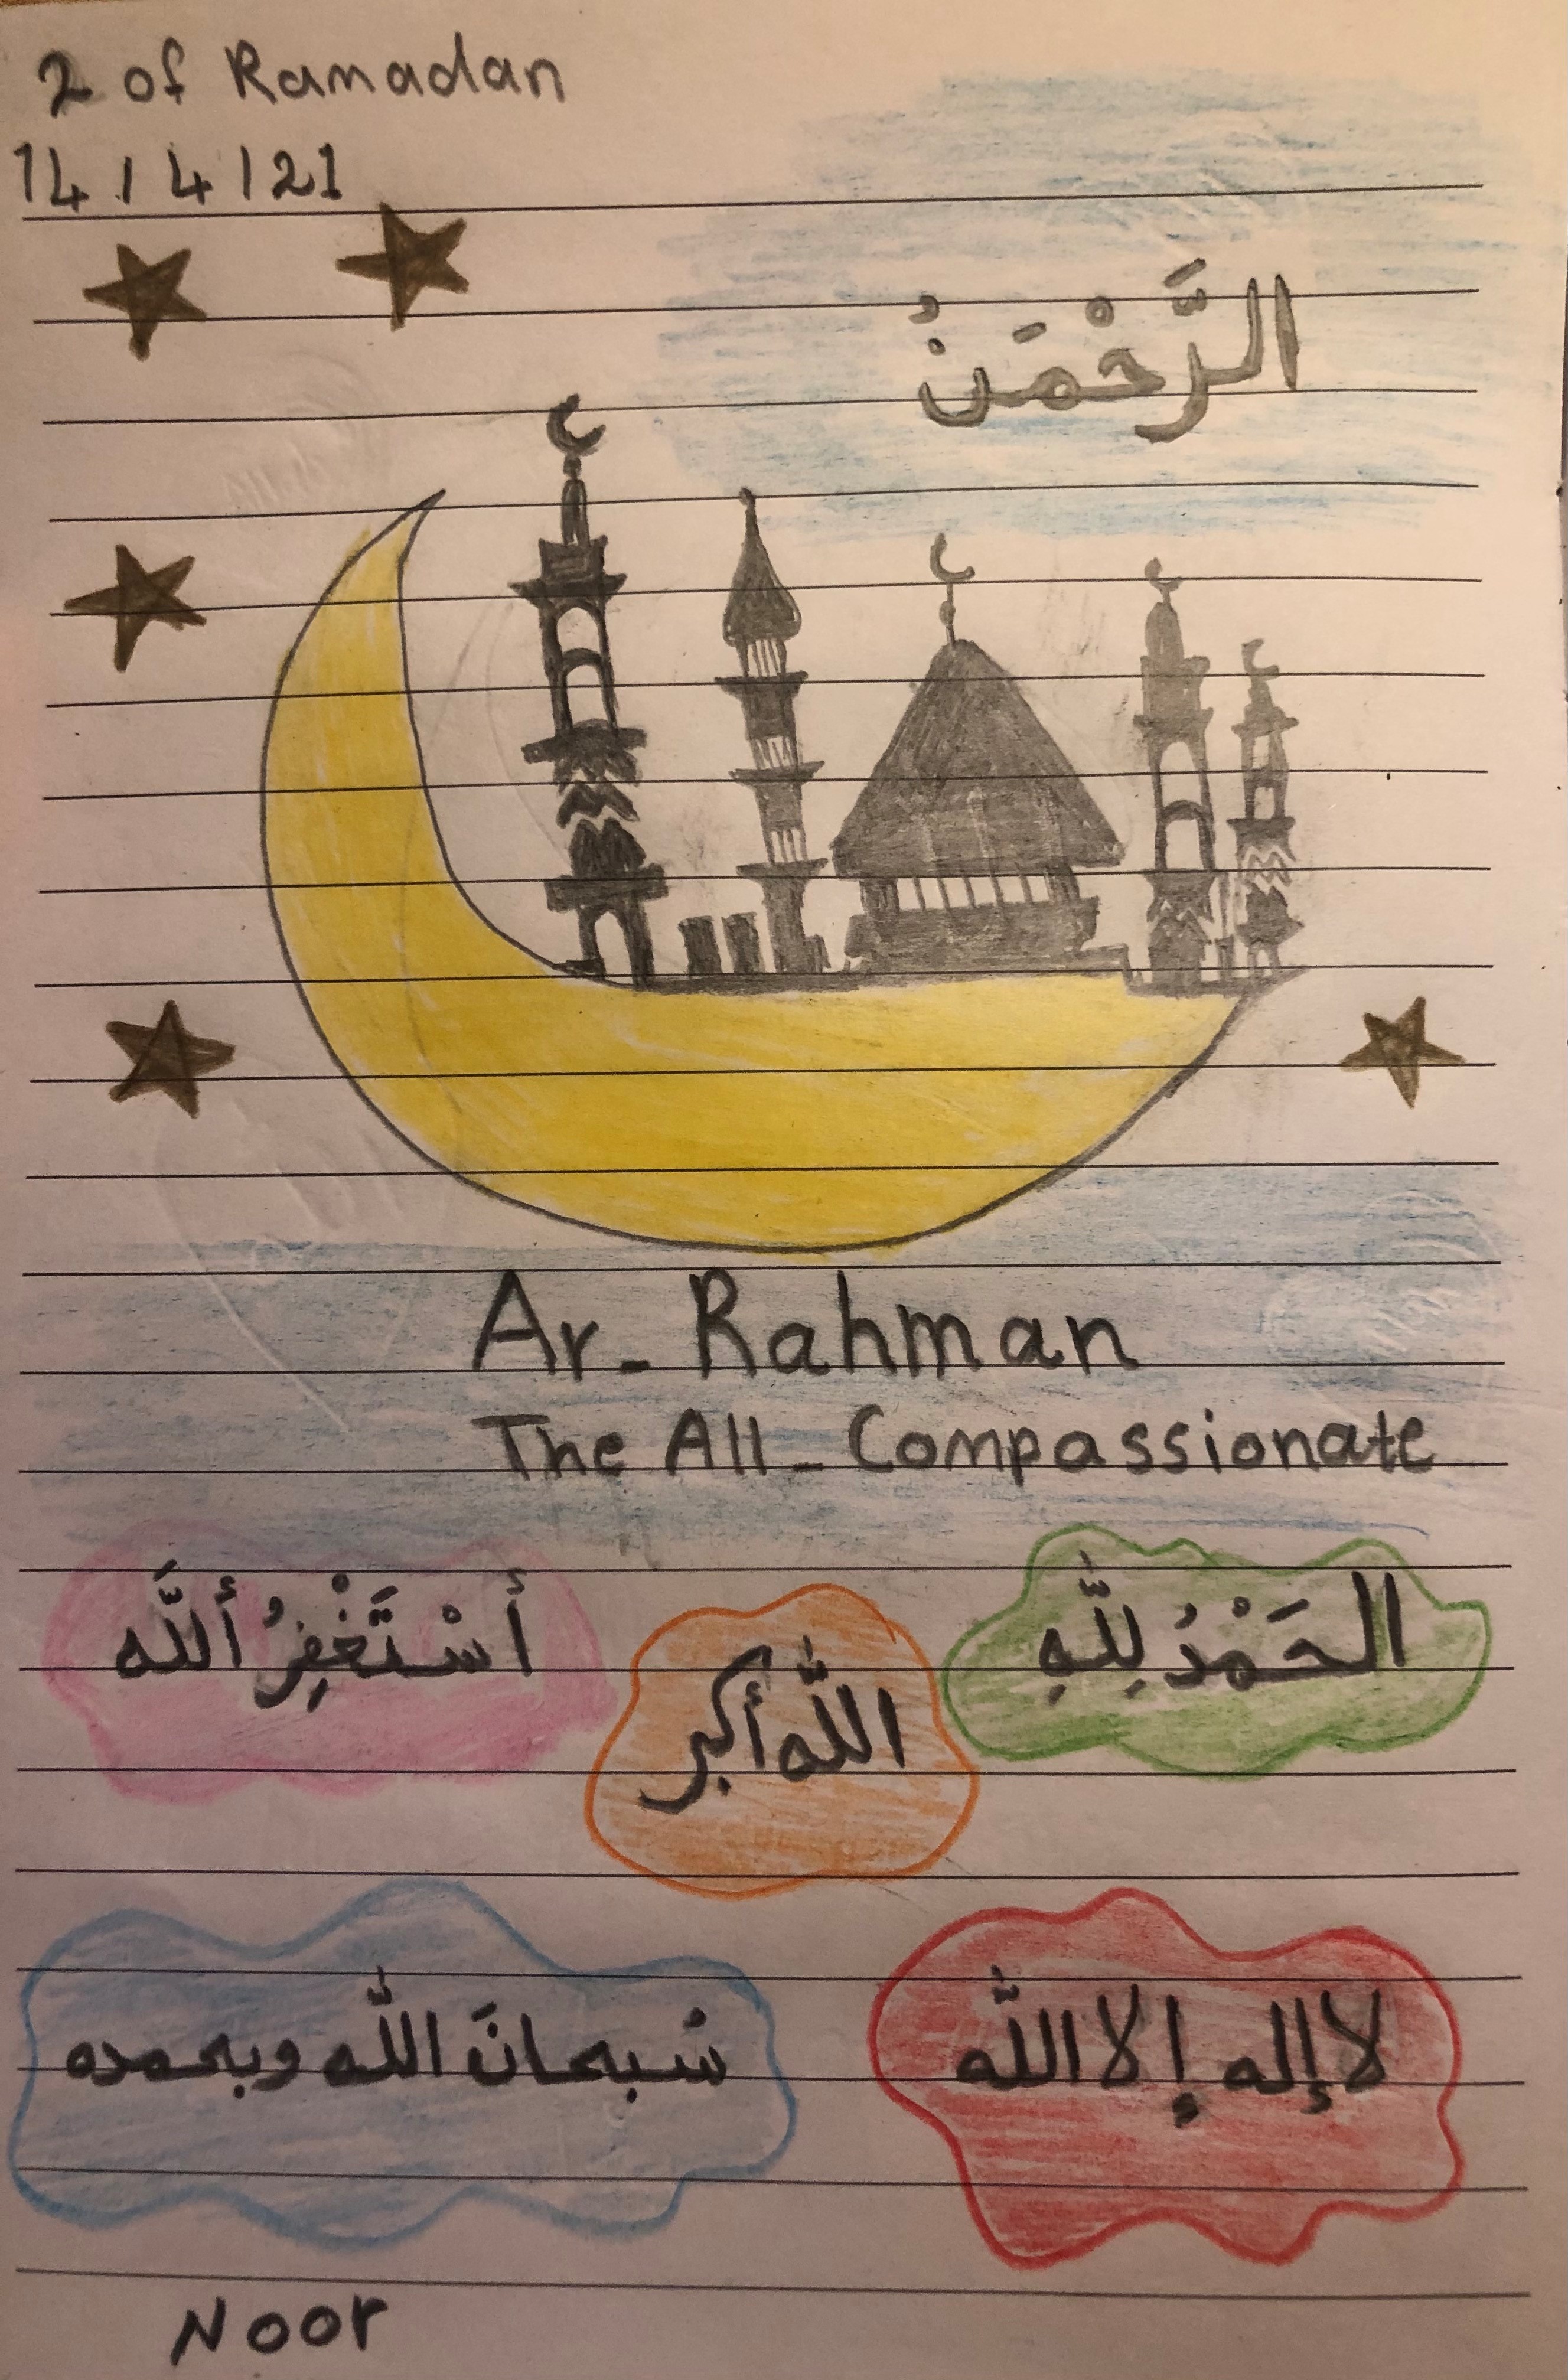 2 of Ramadan
14/4/21
الرَّحْمَنُ
Ar-Rahman
The All-Compassionate
الحَمْدُ لِلَّهِ
اللَّه أكبر
أَسْتَغْفِرُ أللَّه
لا إله إلا اللَّه
سُبحانَ اللَّه وبحمده
Noor